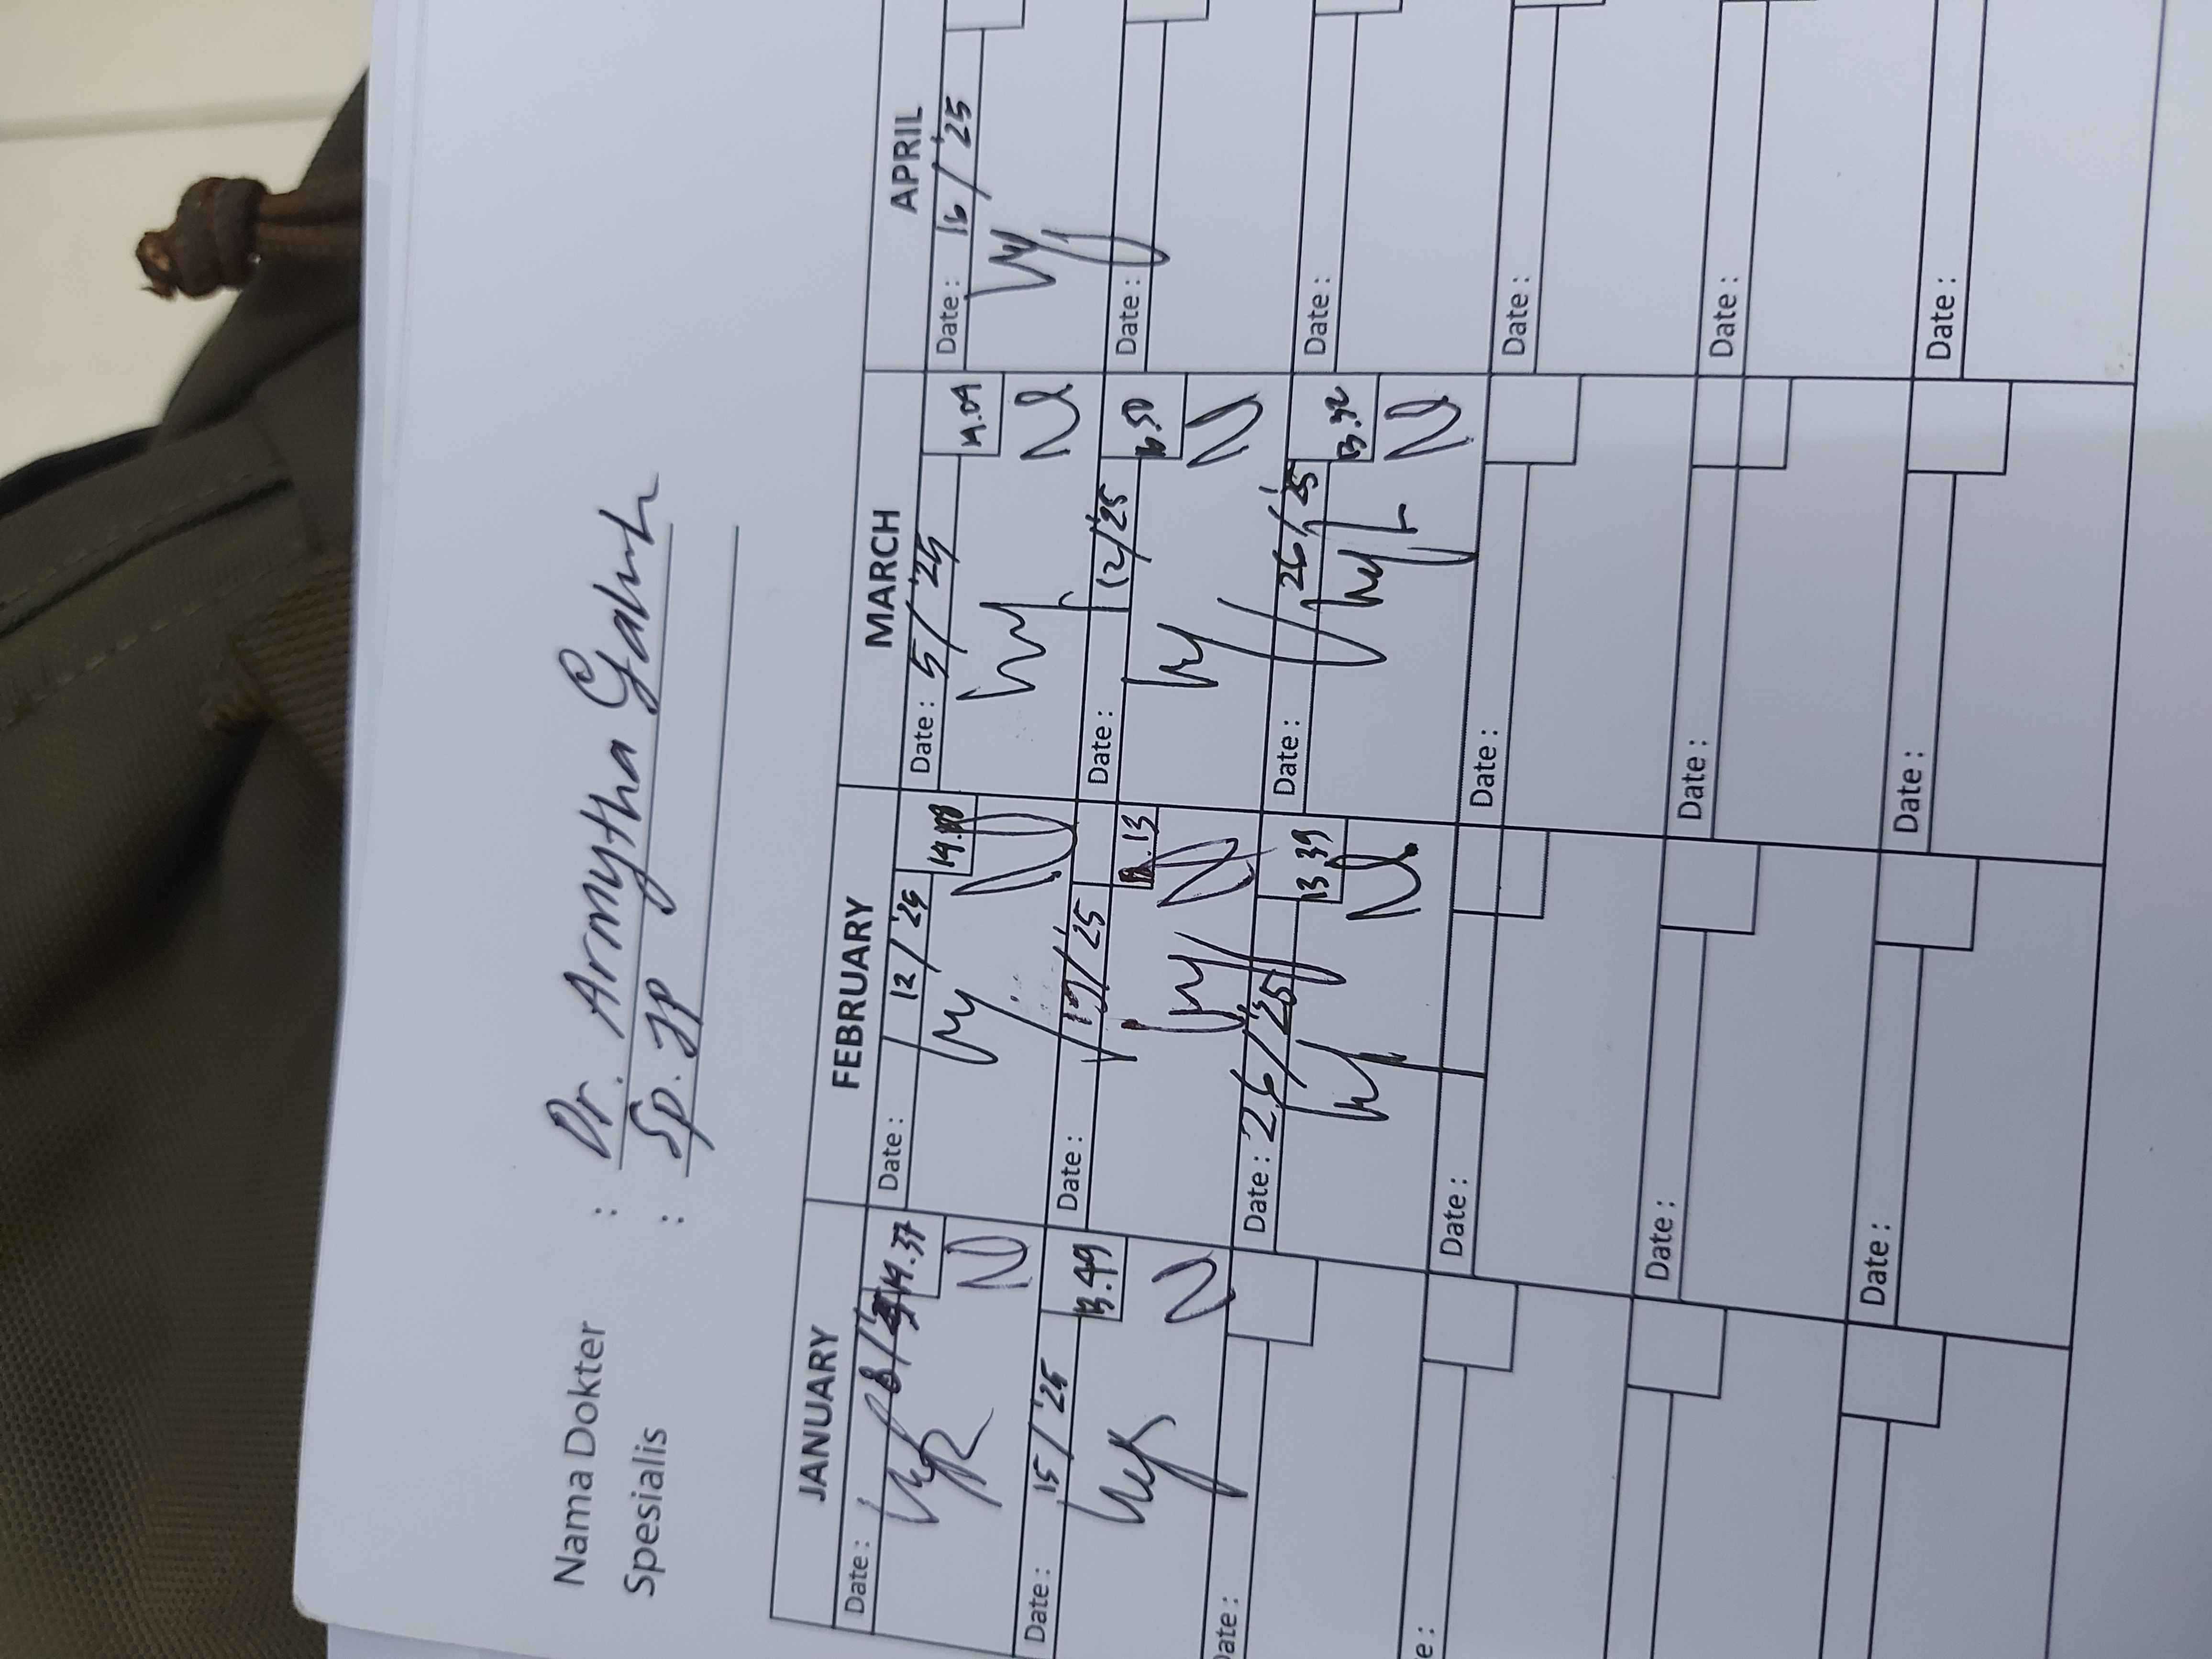 Nama Dokter : Dr. Armytha
Spesialis : Sp. JP
JANUARY FEBRUARY MARCH APRIL
Date : 8/ 14.37 Date : 12/'25 Date : 5/'25 Date : 16/'25
Date : 15/'25 13.49 Date : 19/'25 .13 Date : 12/'25 Date :
Date : Date : 26/'25 13 39 Date : 26/'25 13.32 Date :
Date : Date : Date :
Date : Date : Date :
Date : Date : Date :